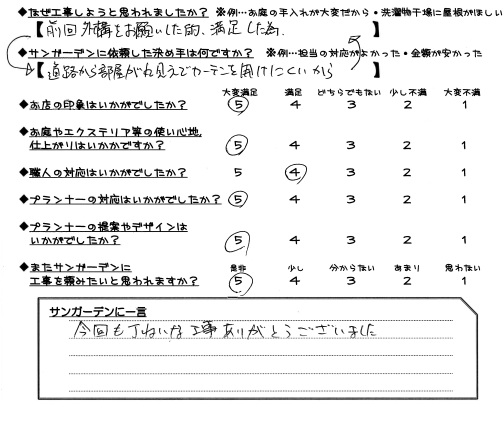 ◆なぜ工事しようと思われましたか？ ※例…お庭の手入れが大変だから・洗濯物干場に屋根がほしい
【前回外構をお願いした時、満足した為。】
◆サンガーデンに依頼した決め手は何ですか？ ※例…担当の対応がよかった・金額が安かった
【道路から部屋が丸見えでカーテンを開けにくいから】
大変満足 満足 どちらでもない 少し不満 大変不満
◆お店の印象はいかがでしたか？ 5 4 3 2 1
◆お庭やエクステリア等の使い心地、
仕上がりはいかがですか？ 5 4 3 2 1
◆職人の対応はいかがでしたか？ 5 4 3 2 1
◆プランナーの対応はいかがでしたか？ 5 4 3 2 1
◆プランナーの提案やデザインは
いかがでしたか？ 5 4 3 2 1
◆またサンガーデンに 是非 少し 分からない あまり 思わない
工事を頼みたいと思われますか？ 5 4 3 2 1
サンガーデンに一言
今回も丁ねいな工事ありがとうございました